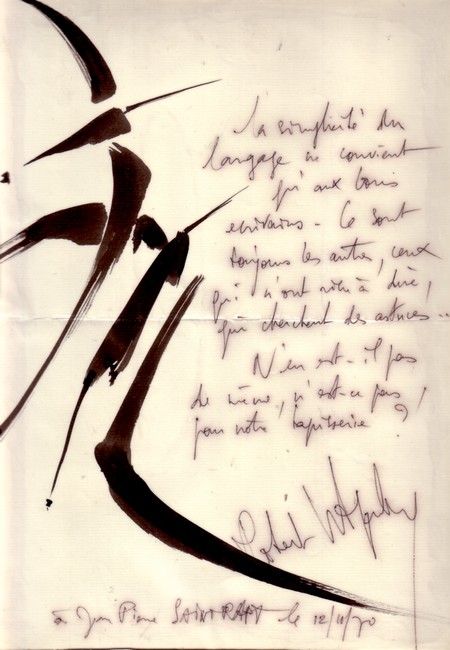 La simplicité du
langage ne convient
qu'aux bons
écrivains - Ce sont
toujours les autres, ceux
qui n'ont rien à dire,
qui cherchent des astuces..
N'en est-il pas
de même, n'est-ce pas,
pour notre tapisserie ?
Robert
à Jean Pierre le 12/11/70